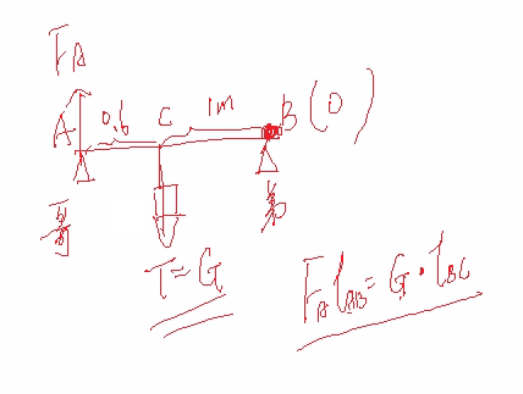 F_A
A 0.6 C 1m B (0)
哥 弟
T=G
F_A l_AB = G · l_BC